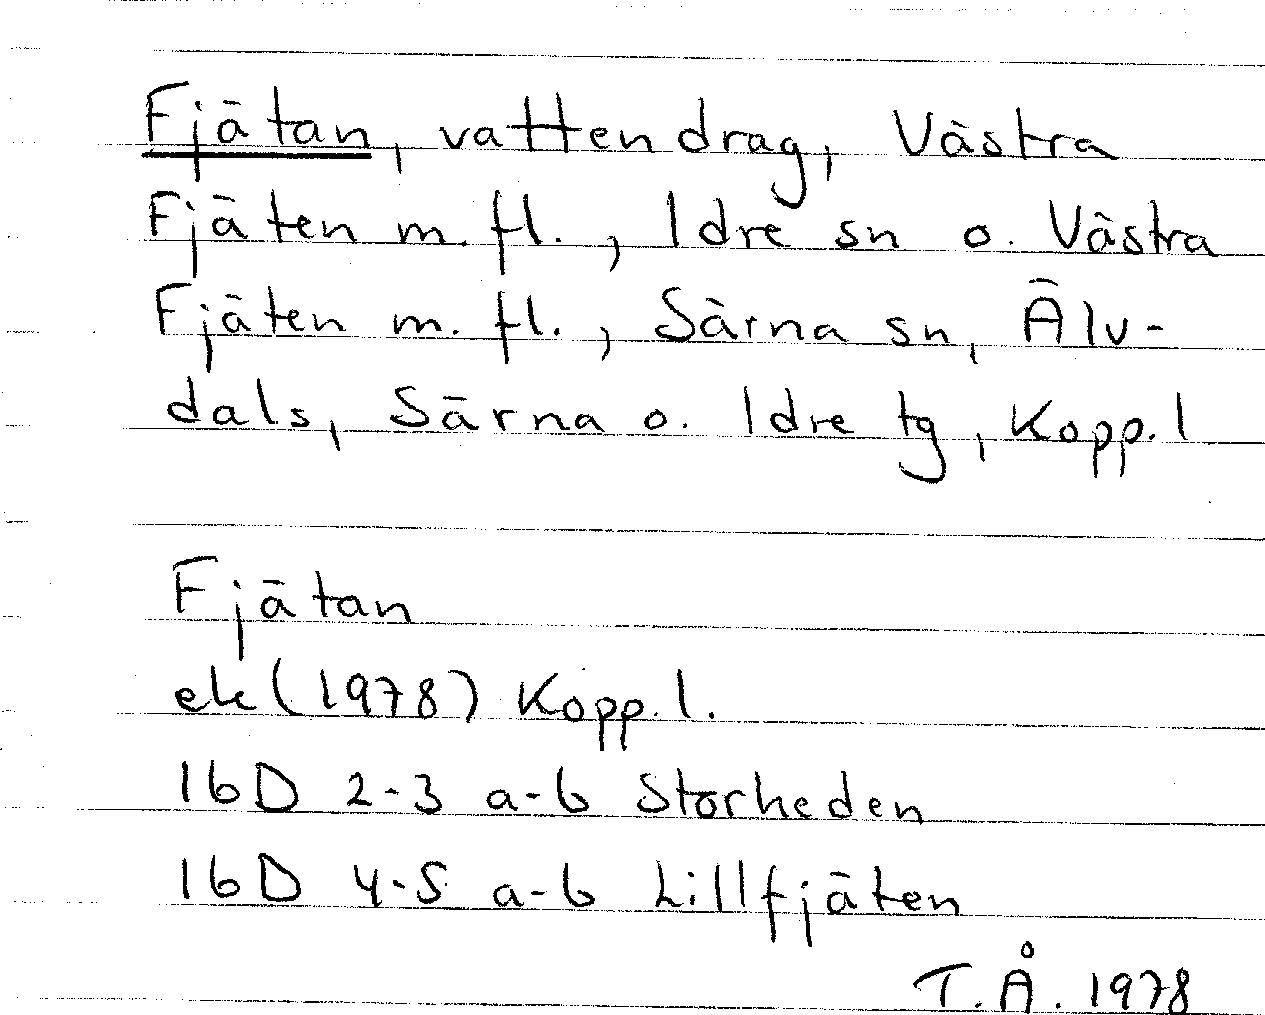 Fjätan, vattendrag, Västra
Fjäten m. fl., Idre sn o. Västra
Fjäten m. fl., Särna sn, Älv-
dals, Särna o. Idre tg, Kopp. l
Fjätan
ek (1978) Kopp. l.
16D 2-3 a-b Storheden
16D 4-5 a-b Lillfjäten
T.Å. 1978